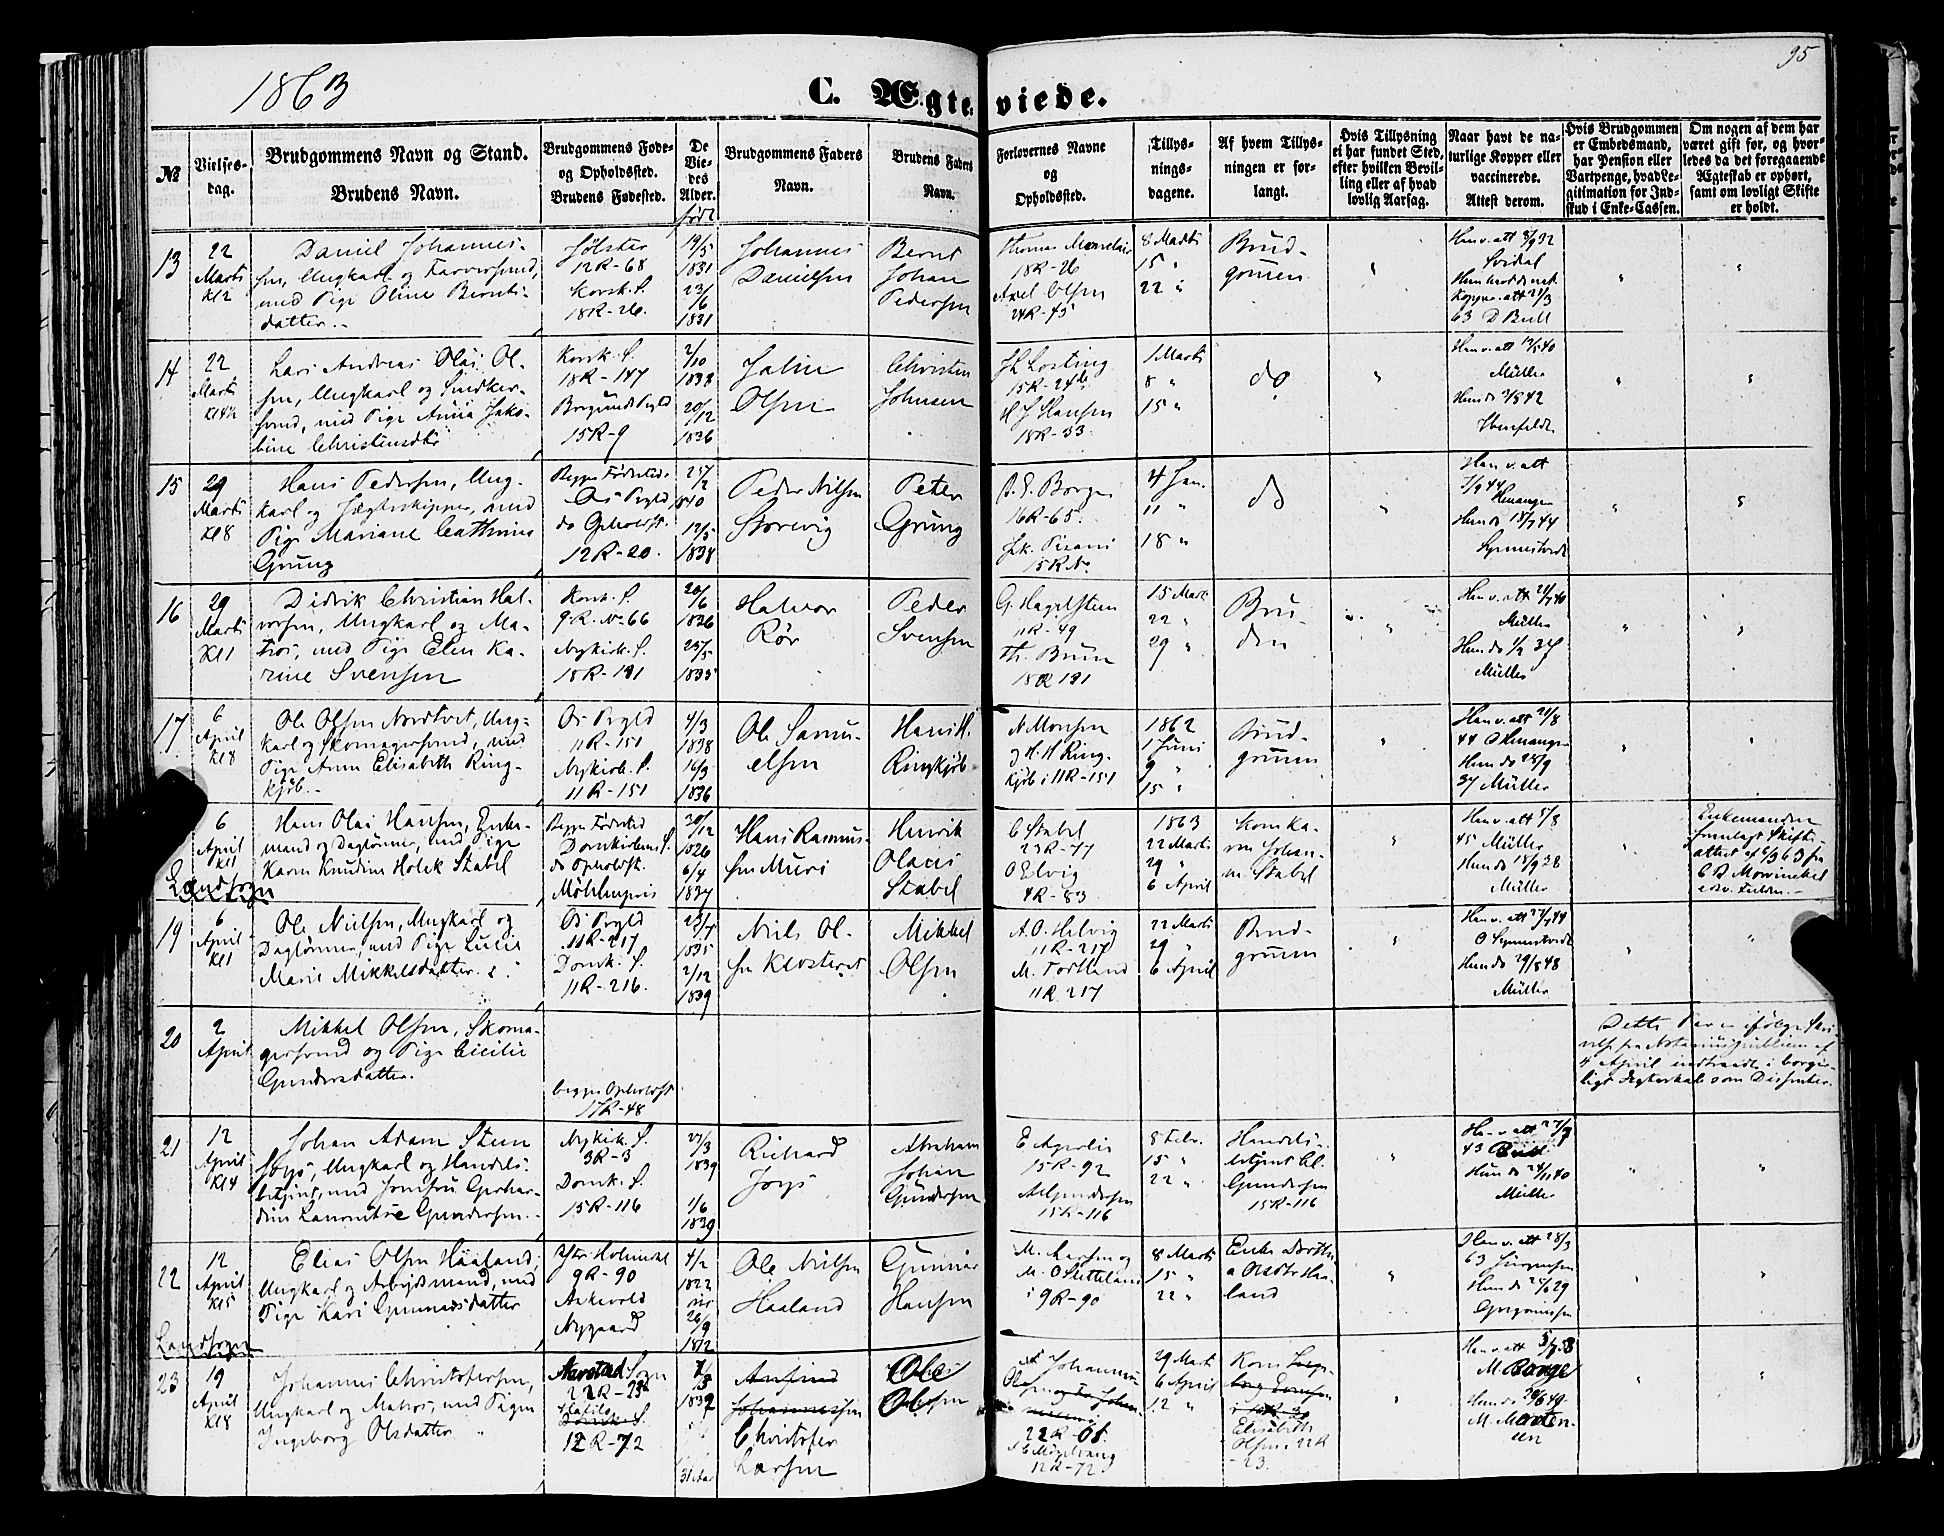 95
1863
C. Ægteviede.
№
Vielses-
dag.
Brudgommens Navn og Stand.
Brudens Navn.
Brudgommens Føde-
og Opholdssted.
Brudens Fødested.
De
Vie-
des
Alder.
født
Brudgommens Faders
Navn.
Brudens Faders
Navn.
Forlovernes Navne
og
Opholdssted.
Tillys-
nings-
dagene.
Af hvem Tillys-
ningen er for-
langt.
Hvis Tillysning
ei har fundet Sted,
efter hvilken Bevil-
ling eller af hvad
lovlig Aarsag.
Naar havt de na-
turlige Kopper eller
vaccinerede.
Attest derom.
Hvis Brudgommen
er Embedsmand,
har Pension eller
Vartpenge, hvad Le-
gitimation for Ind-
skud i Enke-Cassen.
Om nogen af dem har
været gift før, og hvor-
ledes da det foregaaende
Ægteskab er ophørt,
samt om lovligt Skifte
er holdt.
13
22
Marts
Kl 2
Daniel Johannes-
sen, Ungkarl og Farversvend,
med Pige Oline Bernts-
datter
Jølster
12R-68
Korsk. S.
18R-26.
19/5
1831
23/
6
1831
Johannes
Danielsen
Bernt
Johan
Pedersen
Thomas
18R-26
Axel Olsen
24R-45
8 Marts
15 "
22 "
Brud-
gomen
Han v. att 8/9 32
Hun havt de nat.
Kopper. att 21/3
63 D Bull
14
22
Marts
Kl 4½
Lars Andreas Olai Ol-
sen, Ungkarl og Snedker-
svend, med Pige Anna Jako-
bine Christensdtr
Korsk. S.
18R-147
Borgunds Prgld
15R-9
2/10
1838
20/12
1836
Johan
Olsen
Christen
Johnsen
Jk Losting
15R-24b
H J Hansen
18R-33
1 Marts
8 "
15 "
do
Han v. att 13/5 40
Müller
Hun do 2/8 42
15
29
Marts
Kl 8
Hans Pedersen, Ung-
karl og Jægteskipper, med
Pige Mariane Cathrine
Grung
Begges Fødested
Os Prgld
do Opholdst.
12R-20.
25/2
1840
12/5
1838
Peder Nilsen
Storevig
Peter
Grung
P. E. Borge
16R-65.
Jk. Pisani
15R №
4 Jan.
11 "
18 "
do
Han v. att
7/9 44
Hun do 18/7 44
16
29
Marts
Kl 1
Didrik Christian Hal-
vorsen, Ungkarl og Ma-
tros, med Pige Elen Ka-
rine Svensen
Korsk. S.
9R. № 66
Nykirk. S.
18R-191
20/6
1836
25/5
1835
Halvor
Rør
Peder
Svensen
G. Hagelsteen
11R-49
Th. Bruun
18R 191
15 Marts
22 "
29 "
Bru-
den
Han v. att 24/7 40
Müller
Hun do 1/2 37
Müller
17
6
April
Kl 8
Ole Olsen Nordtvet, Ung-
karl og Skomagersvend, med
Pige Anna Elisabeth Ring-
kjøb.
Os Prgld
11R-151
Nykirk. S.
11R-151
4/3
1838
16/3
1836
Ole Samu-
elsen
Hans H.
Ringkjøb
N Monsen
og H. H Ring-
kjøb i 11R-151
1862
1 Juni
9 "
15 "
Brud-
gomen
Han v. att 21/8
44
Hun do 28/9
37 Müller
6
April
Kl 1
Landsogn
Hans Olai Hansen, Enke-
mand og Dagløner, med Pige
Karen Knudine Holck Stabel
Begges Fødested
Domkirkens S.
do Opholdst.
Møhlenpris
30/12
1826
6/4
1837
Hans Rasmus-
sen Muri
Henrik
Olaus
Stabel
C Stabel
23R-77
O Elvig
4R-83
1863
22 Marts
29 "
6 April
Kone Ka-
ren Johan-
ne Stabel
Han v. att 5/8
45 Müller
Hun do 18/9 38
Müller
Enkemanden
fremlagt Skifte-
attest af 6/3 63 fra
C D Mowinckel
19
6
April
Kl 1
Ole Nielsen, Ungkarl og
Dagløner, med Pige Lucie
Marie Mikkelsdatter.
Os Prgld
11R-217
Domk. S.
11R-216.
23/7
1835
2/12
1839
Niels Ol-
sen Klosteret
Mikkel
Olsen
A. O. Helvig
11R-217
M. Tortland
11R 217
22 Marts
29 "
6 April
Brud-
gomen
Han v. att 27/7 44
Hun do 29/8 48
Müller
20
2
April
Mikkel Olsen, Skoma-
gersvend og Pige Cicilie
Gundersdatter.
begges Opholdst
17R-48
Dette Par er ifølge Skri-
velse fra Notarius publicus af
4 April indtraadt i borger-
ligt Ægteskab som Dissenter.
21
12
April
Kl 4
Johan Adam Steen
Joys, Ungkarl og Handels-
betjent, med Jomfru Gerhar-
dine Gundersen.
Nykirk. S.
3R-3
Domk. S.
15R-116
27/3
1839
1/6
1839
Richard
Joys
Abraham
Johan
Gundersen
E Agerlie
15R-92
A Gundersen
15R-116
8 Febr.
15 "
22 "
Handels-
betjent Cl.
Gundersen
15R-116
Han v. att 27/9
43 Bull
Hun do 24/11 40
Müller
22
12
April
Kl 5
Elias Olsen Haaland,
Ungkarl og Arbejdsmand, med
Pige Kari Gunnarsdatter
Ytre Holmedal
9R-90
Askevold
Nygaard
4/2
1822
26/9
1812
Ole Nielsen
Haaland
Gunnar
Hansen
M. Larsen og
M. O Sletteland
i 9R-90
8 Marts
15 "
22 "
Enke Dorthe
a Olsdtr Haa-
land
Han v. att 28/3
63 Jürgensen
Hun do 24/6 29
Landsogn
23
19
April
Kl 8
Johannes Christofersen,
Ungkarl og Matros, med Pigen
Ingeborg Olsdatter "
Aarstad Sogn
22R-23
Domk. S.
12R-72
1837
31 Aar
Anfind
Johannessen
Christofer
Larsen
Ole
Olsen
Johannes
22R-61
12R-72
29 Marts
6 April
12 "
Kone
Elisabeth
Olsen i 22R
-23.
Han v. att 5/7 58
M. Borge
Hun do 20/6 49.
M. Morten-
sen